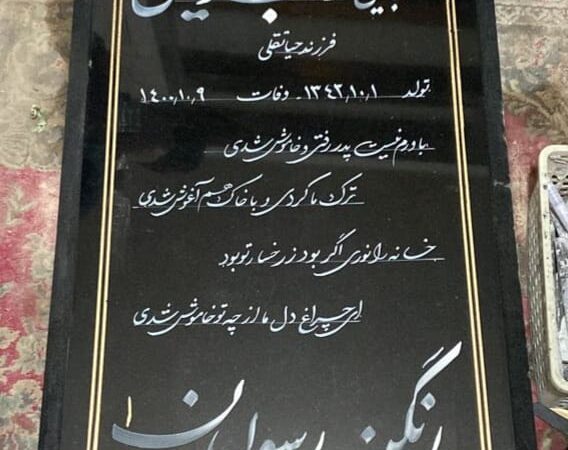 فرزند حیاتقلی
تولد ۱۳۴۲،۱۰،۱ - وفات ۱۴۰۰،۱۰،۹
باورم نیست پدر رفتی و خاموش شدی
ترک ما کردی و با خاک هم آغوش شدی
خانه را نوری اگر بود ز رخسار تو بود
ای چراغ دل ما از چه تو خاموش شدی